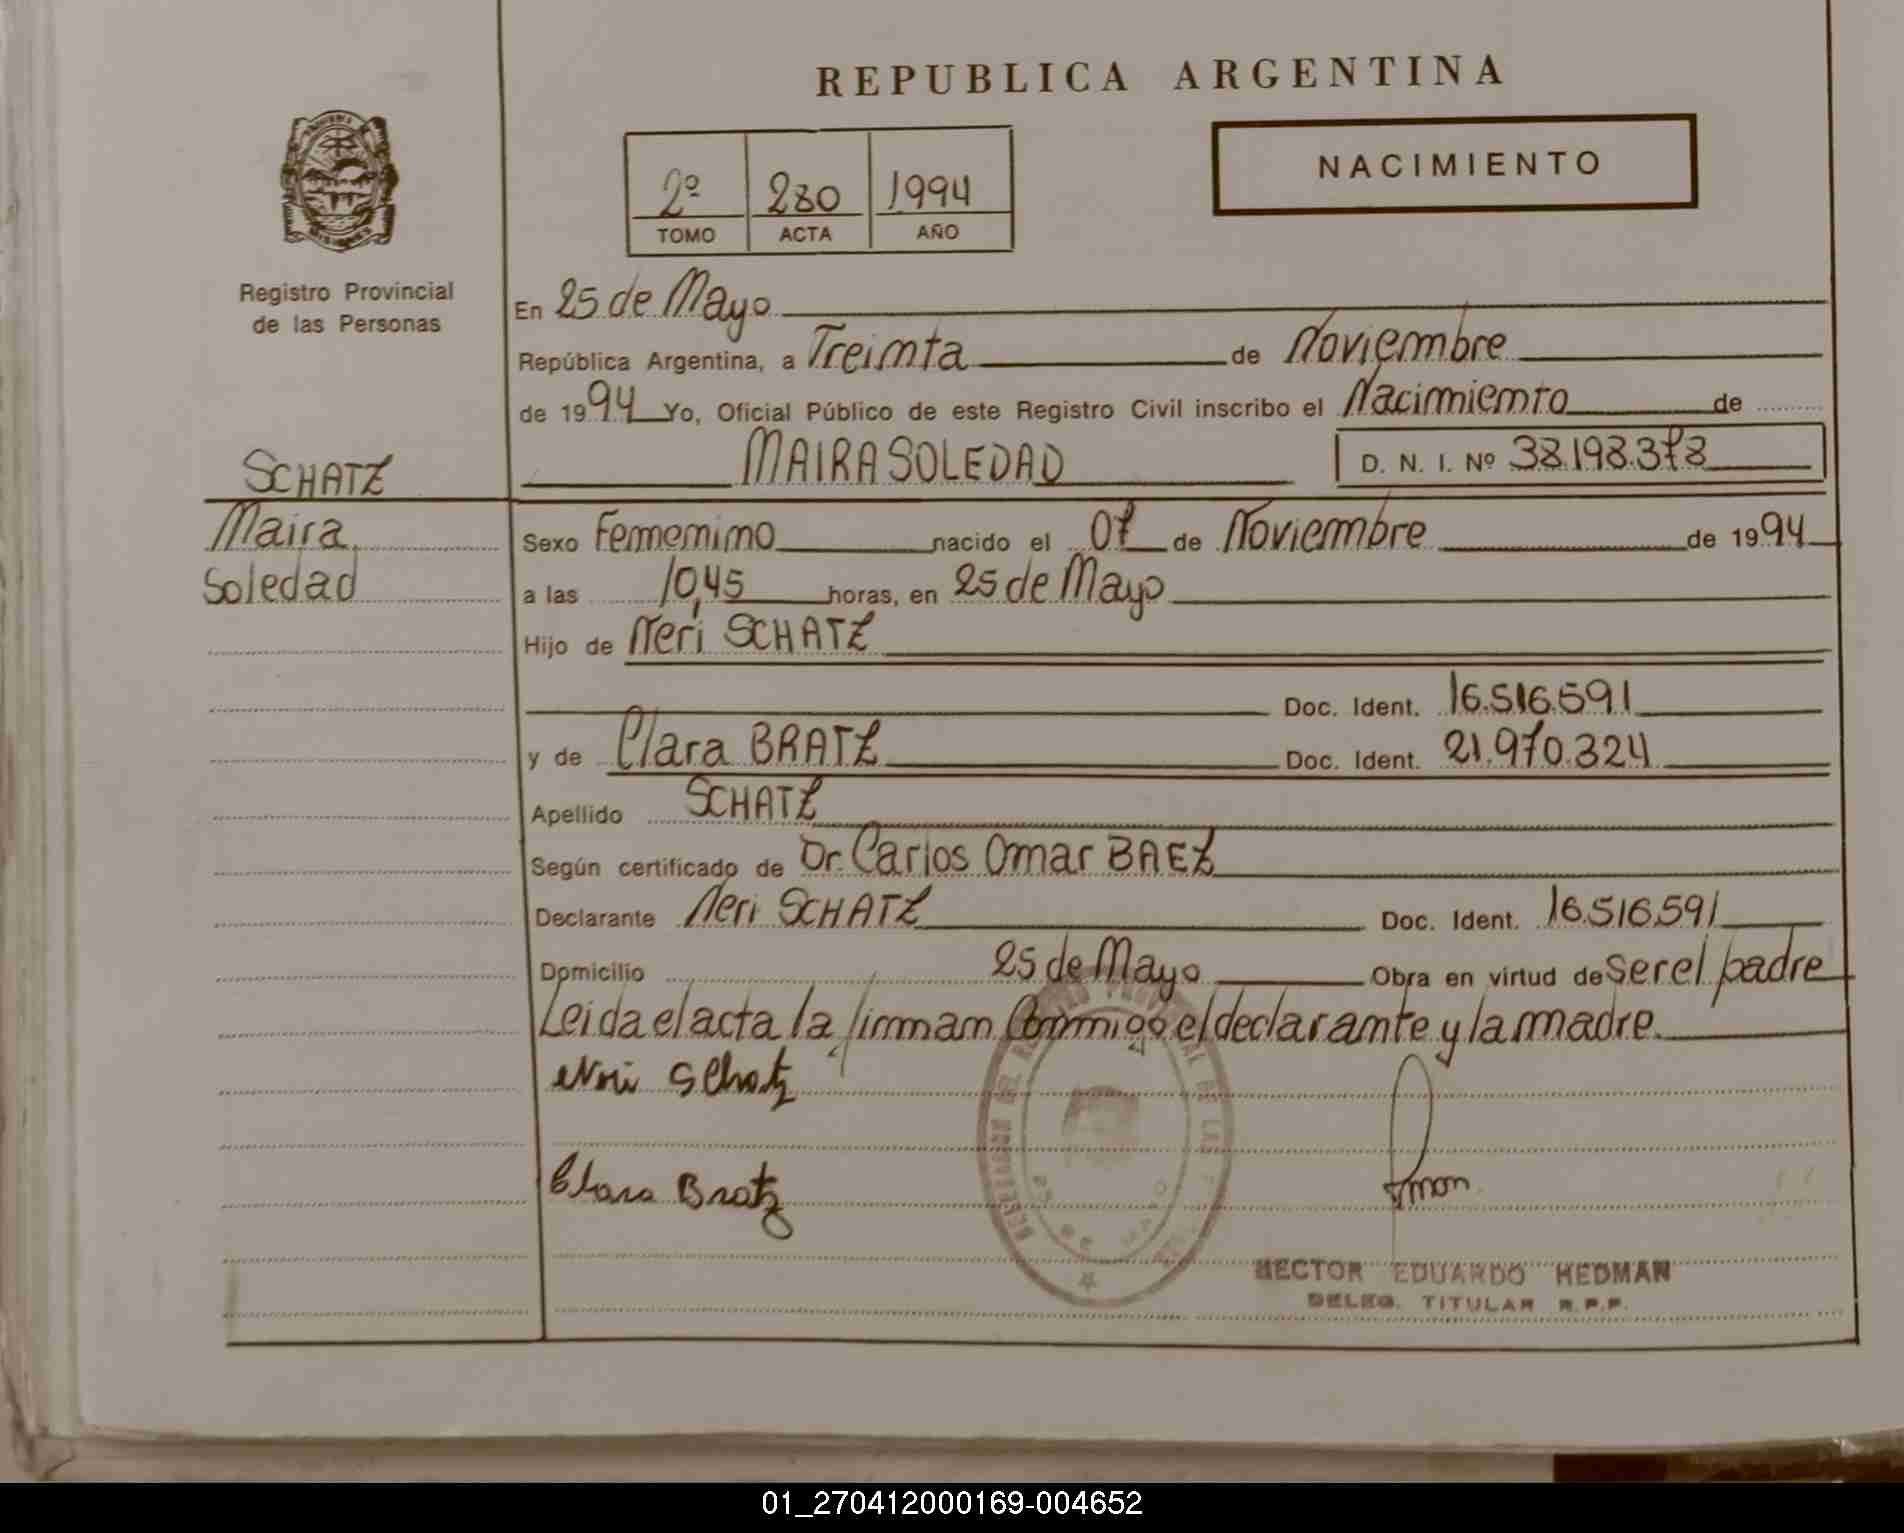 REPUBLICA ARGENTINA
NACIMIENTO
2º 280 1994
TOMO ACTA AÑO
Registro Provincial
de las Personas
En 25 de Mayo
República Argentina, a Treinta de Noviembre
de 1994 Yo, Oficial Público de este Registro Civil inscribo el Nacimiento de
MAIRA SOLEDAD D. N. I. Nº 38.198.378
SCHATZ
Maira
Soledad
Sexo Femenino nacido el 07 de Noviembre de 1994
a las 10,45 horas, en 25 de Mayo
Hijo de Neri SCHATZ
Doc. Ident. 16.516.591
y de Clara BRATZ Doc. Ident. 21.970.324
Apellido SCHATZ
Según certificado de Dr. Carlos Omar BAEZ
Declarante Neri SCHATZ Doc. Ident. 16.516.591
Domicilio 25 de Mayo Obra en virtud de ser el padre
Leida el acta la firman Conmigo el declarante y la madre.
Neri Schatz
Clara Bratz
HECTOR EDUARDO HEDMAN
DELEG. TITULAR R.P.P.
01_270412000169-004652